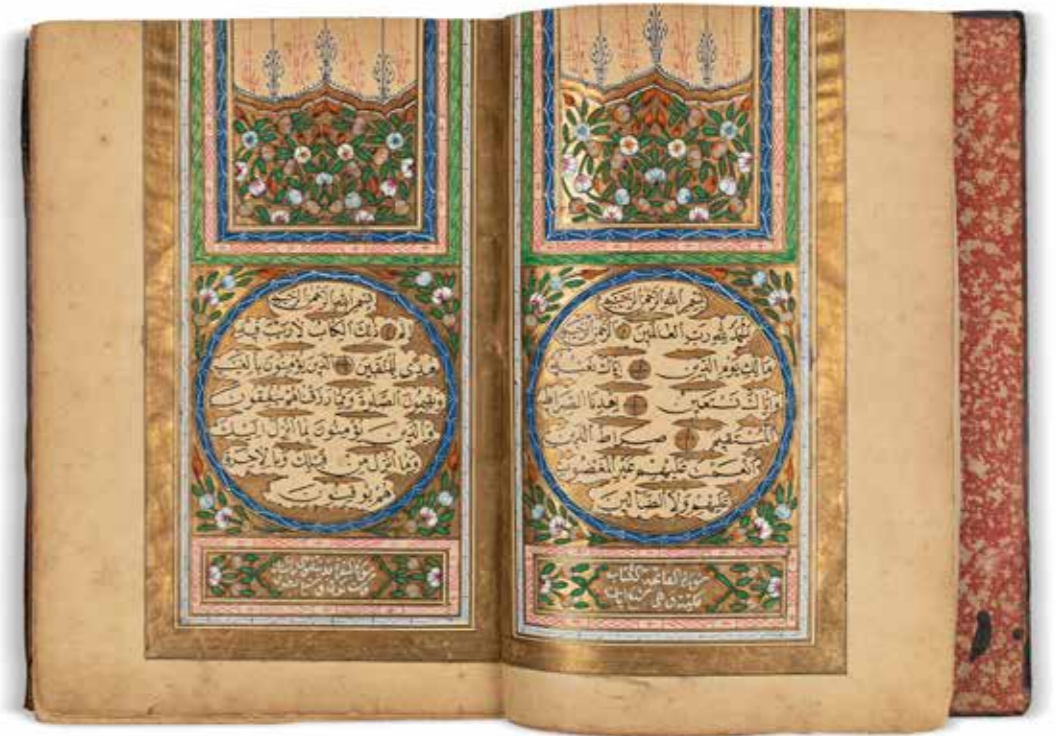 بسم الله الرحمن الرحيم
الحمد لله رب العالمين الرحمن الرحيم
مالك يوم الدين اياك نعبد
واياك نستعين اهدنا الصراط
المستقيم صراط الذين
انعمت عليهم غير المغضوب
عليهم ولا الضالين
سورة الفاتحة الكتاب
مكية وهي سبع ايات
بسم الله الرحمن الرحيم
الم ذلك الكتاب لا ريب فيه
هدى للمتقين الذين يؤمنون بالغيب
ويقيمون الصلوة ومما رزقناهم ينفقون
والذين يؤمنون بما انزل اليك
وما انزل من قبلك وبالاخرة
هم يوقنون
سورة البقرة